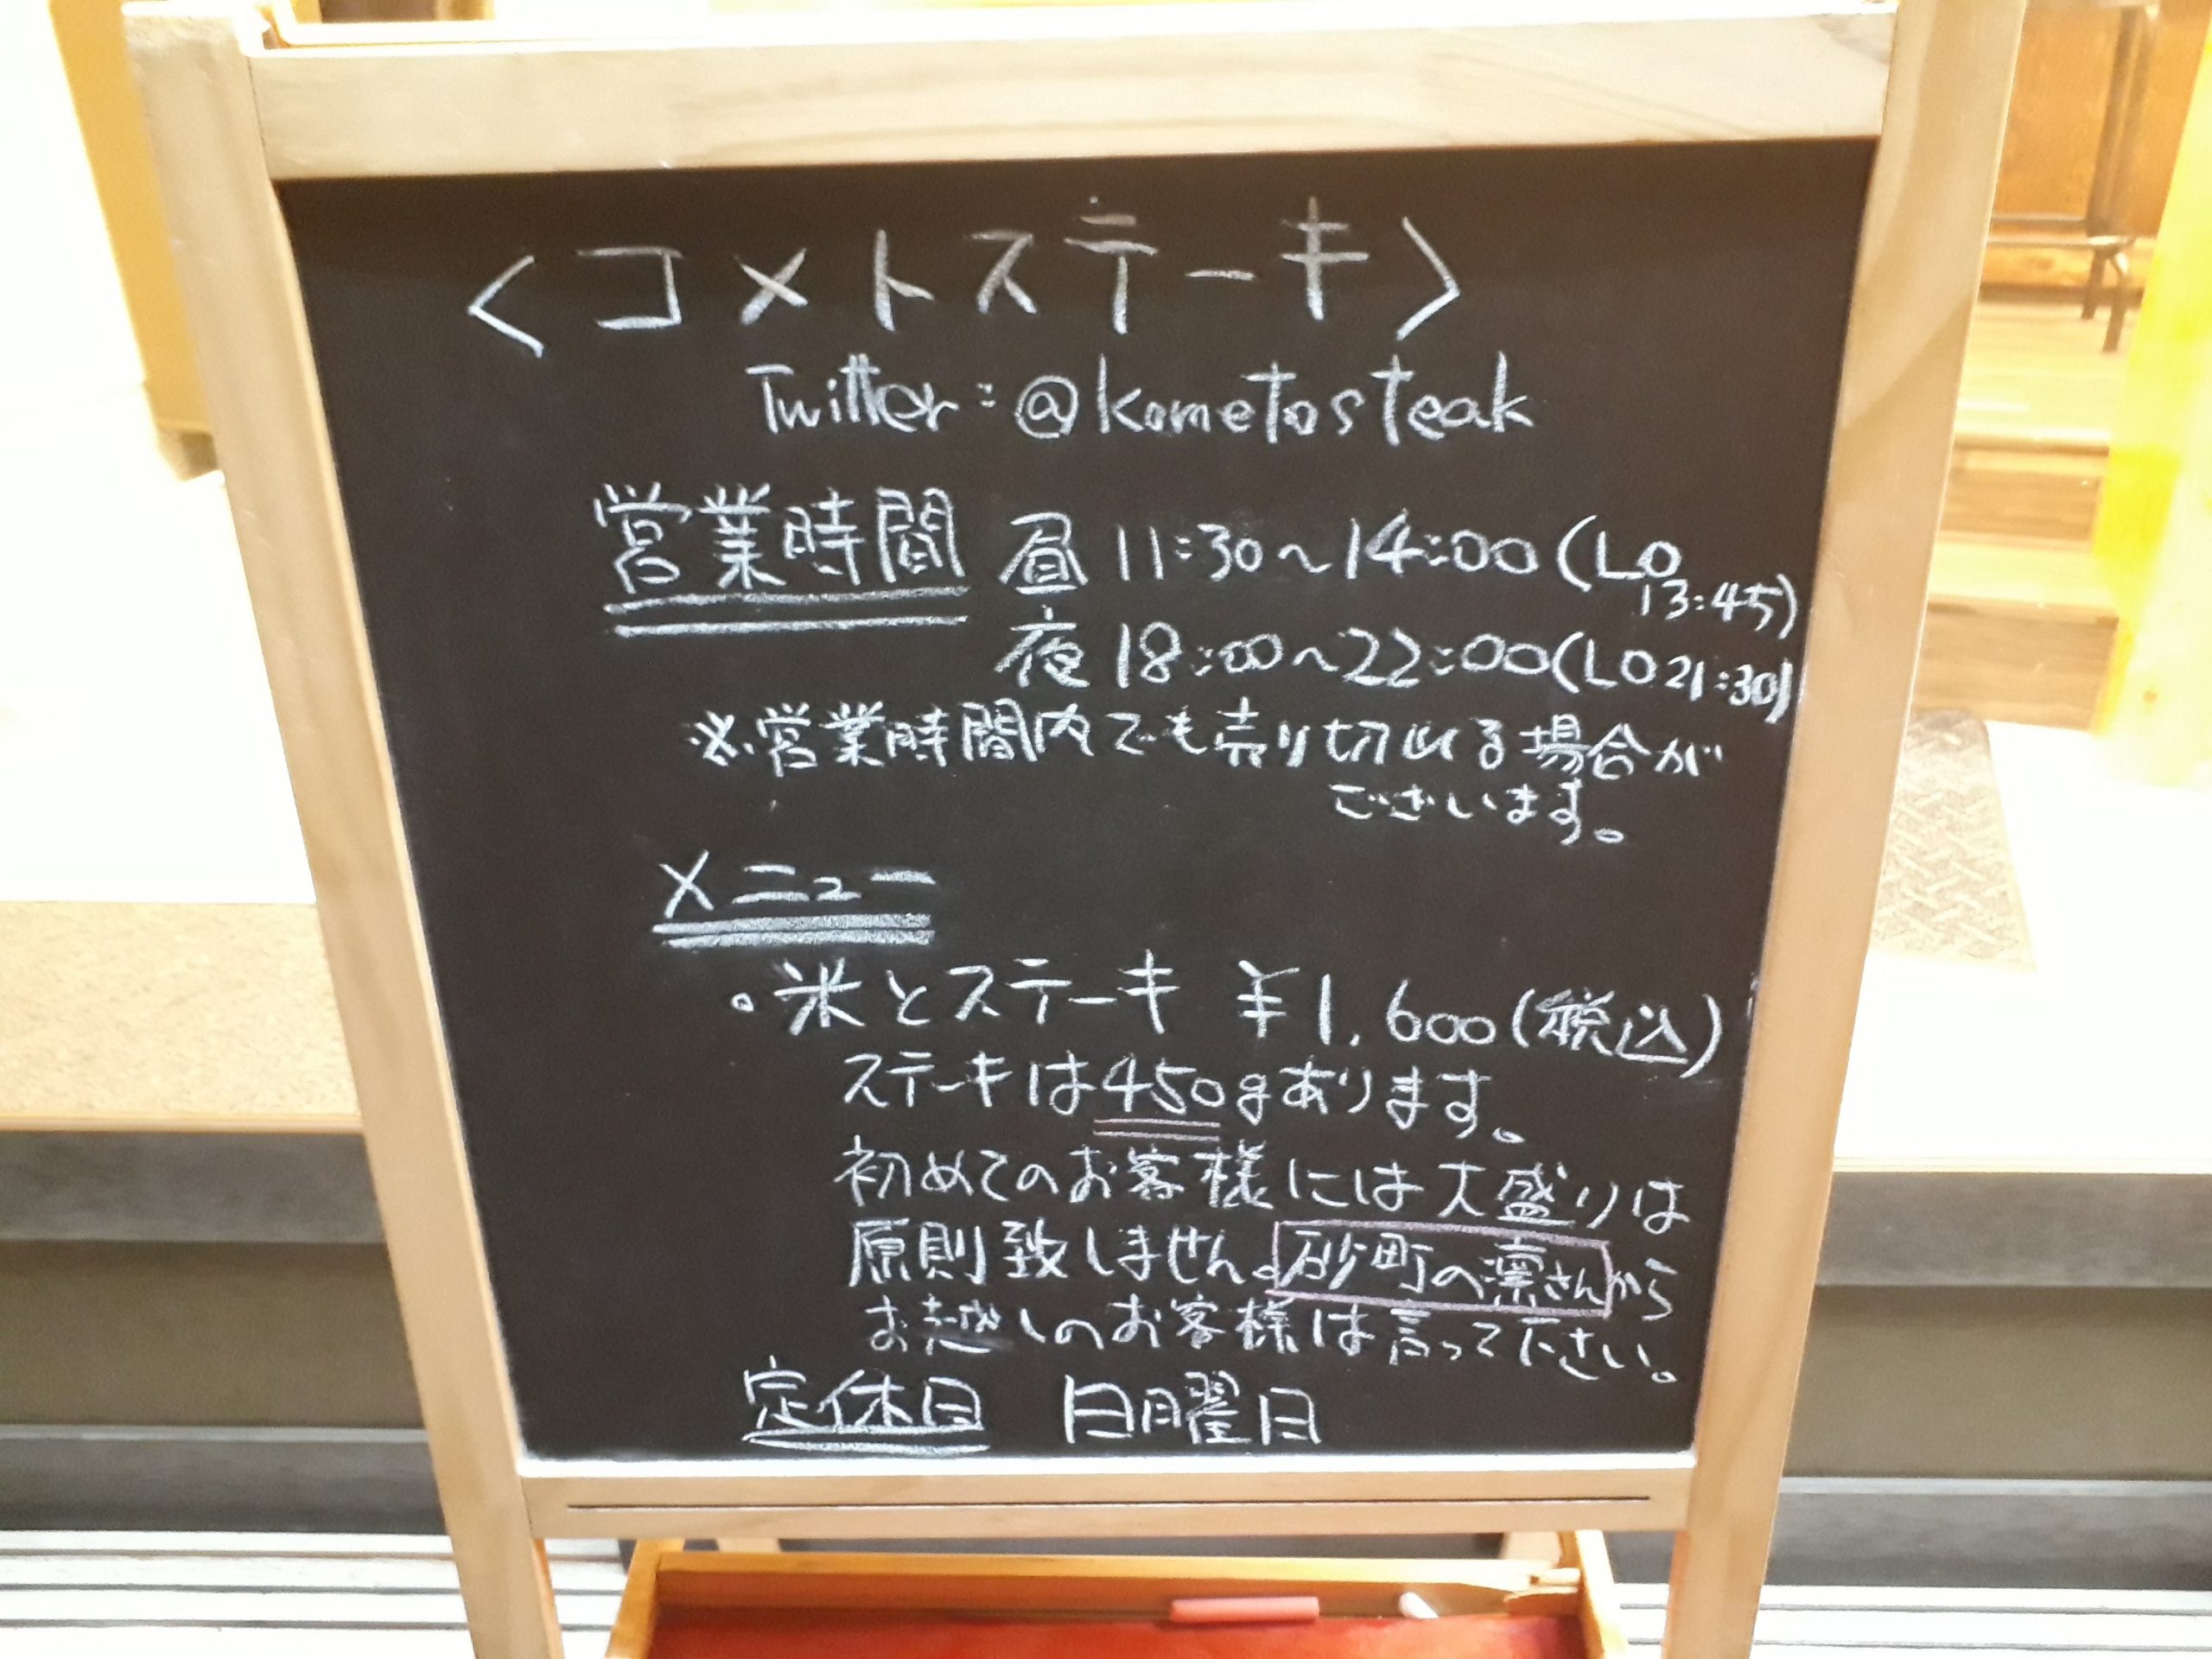 〈コメトステーキ〉
Twitter:@kometosteak
営業時間 昼 11:30〜14:00(LO 13:45)
夜 18:00〜22:00(LO 21:30)
※営業時間内でも売り切れる場合が
ございます。
メニュー
・米とステーキ ¥1,600(税込)
ステーキは450gあります。
初めてのお客様には大盛りは
原則致しません。砂町の凛さんから
お越しのお客様は言って下さい。
定休日 日曜日